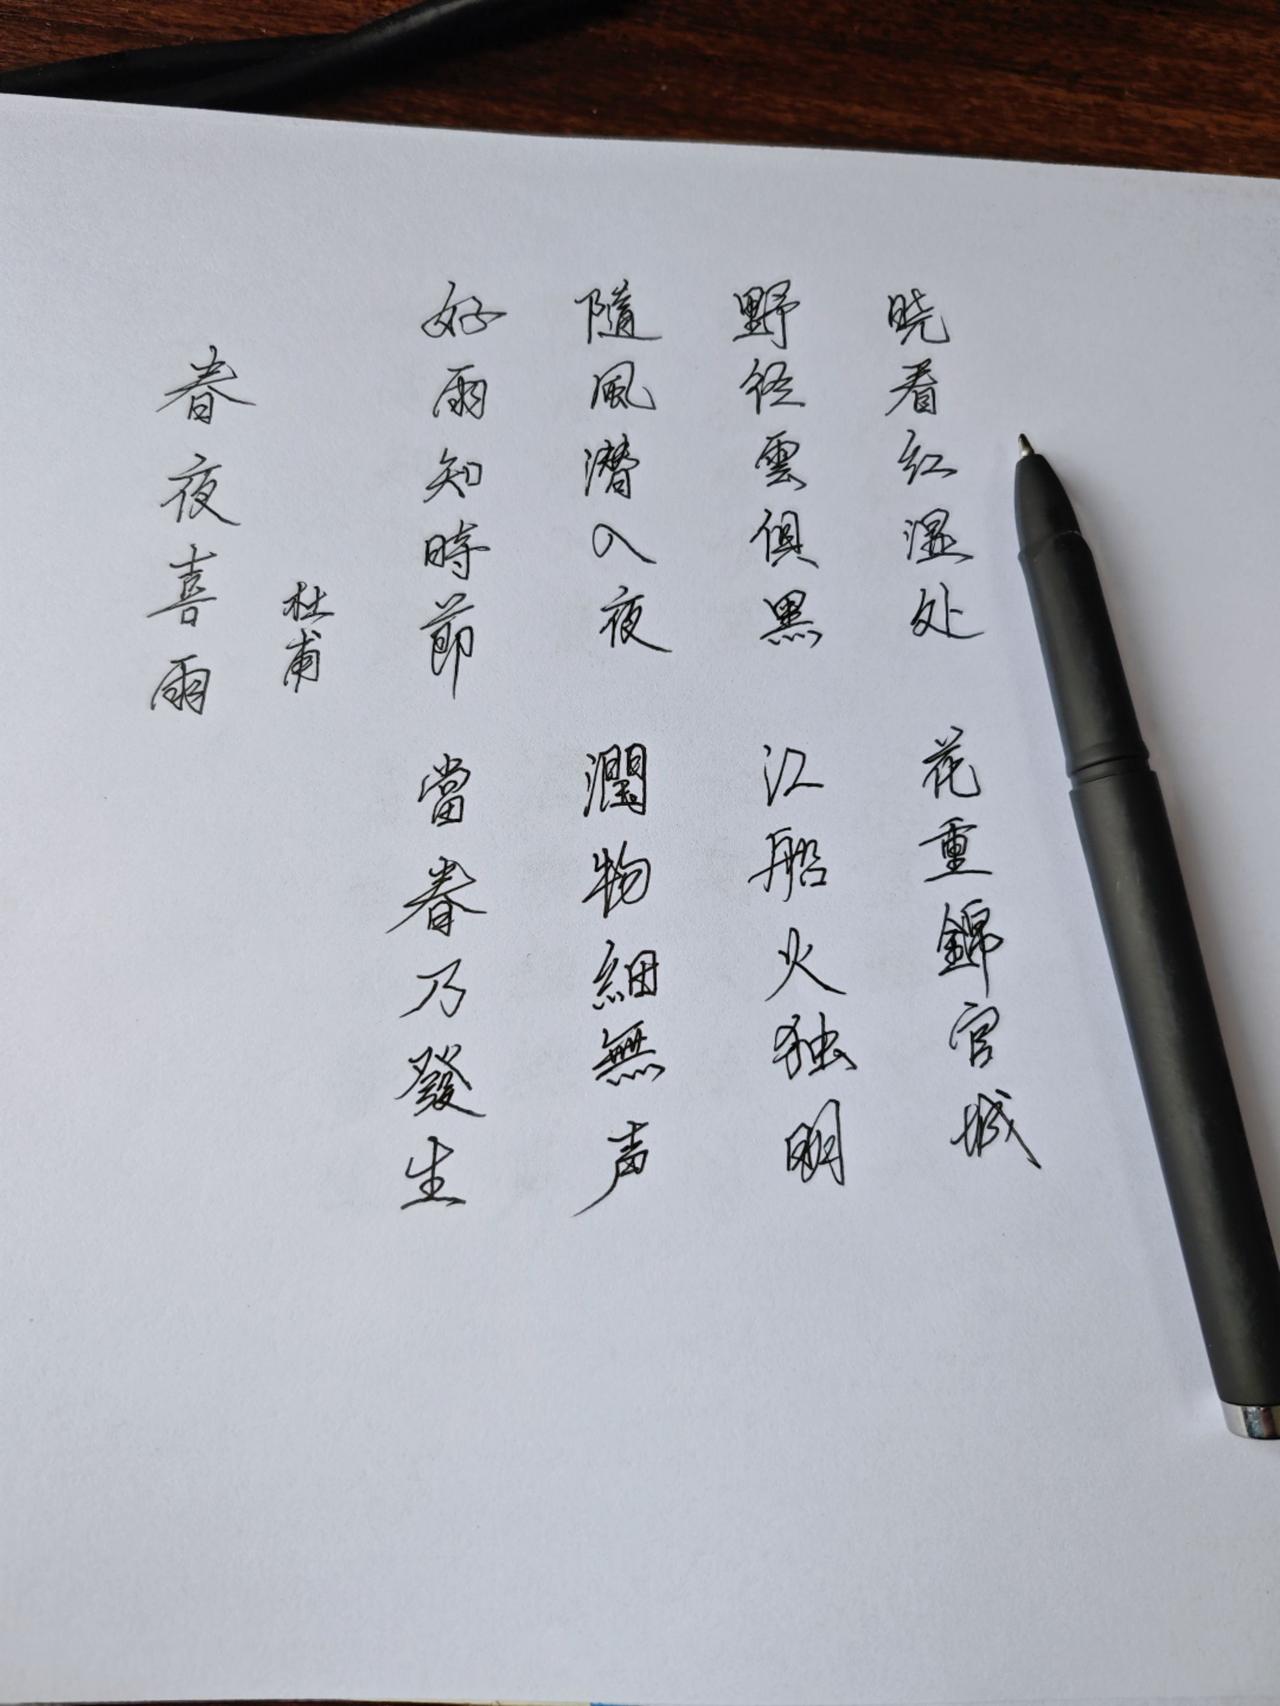 春夜喜雨
杜甫
好雨知時節 當春乃發生
隨風潜入夜 潤物細無声
野径雲俱黑 江船火独明
晓看红湿处 花重錦官城